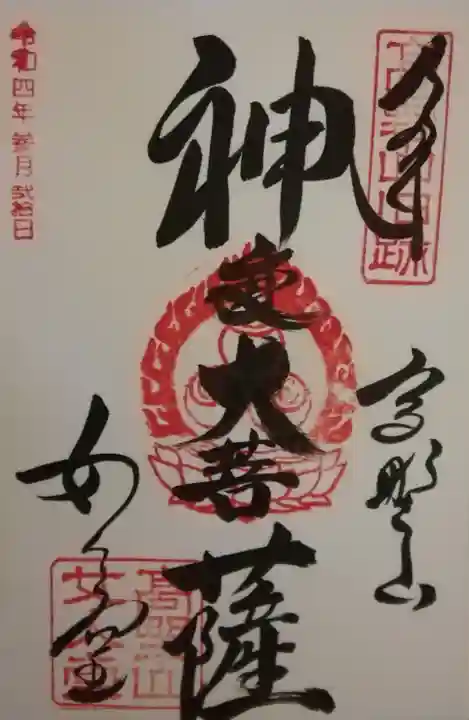 奉拝
高野山
神変大菩薩
女人堂
令和四年参月弐拾日
高野山
女人堂